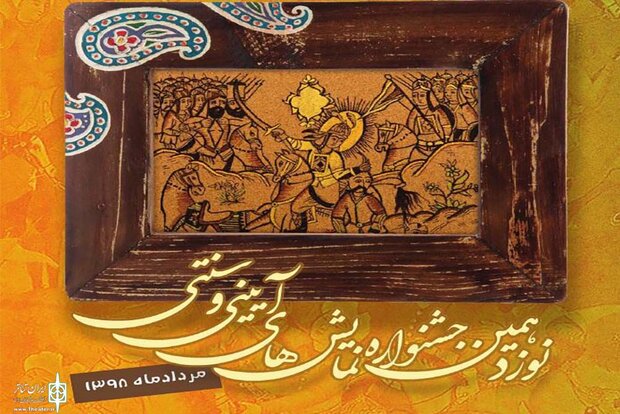 نوزدهمین جشنواره نمایش های آیینی و سنتی
مردادماه ۱۳۹۸
ایران تئاتر